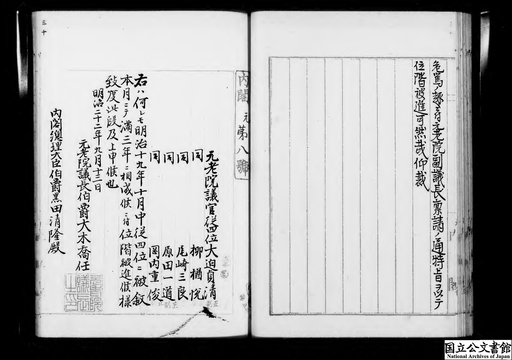 危篤ノ趣ニ付元老院副議長稟請ノ通特旨ヲ以テ
位階被進可然哉仰裁
内閣元第八號
元老院議官従四位大迫貞清
同 柳楢悦
同 尾崎三良
同 原田一道
同 岡内重俊
右ハ何レモ明治十九年十月中従四位ニ被叙
本月ニテ満二年ニ相成候ニ付位階被進候様
致度此段及上申候也
明治二十二年九月十三日
元老院議長伯爵大木喬任
内閣総理大臣伯爵黒田清隆殿
三十
国立公文書館
National Archives of Japan